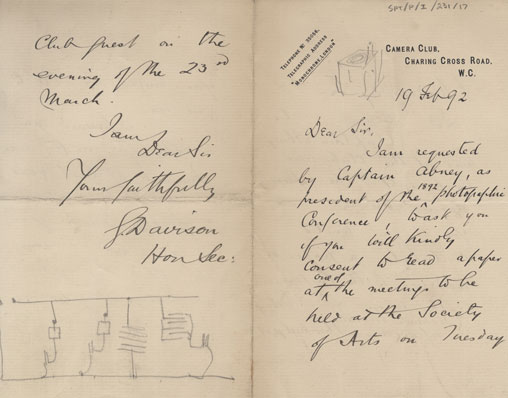 SPT/P/I/231/17
TELEPHONE Nº 35056.
TELEGRAPHIC ADDRESS
"MONOCHROME, LONDON"
CAMERA CLUB,
CHARING CROSS ROAD,
W.C.
19 Feb 92
Dear Sir,
I am requested
by Captain Abney, as
president of the 1892 photographic
Conference, to ask you
if you will kindly
consent to read a paper
at one of the meetings to be
held at the Society
of Arts on Tuesday
Club guest on the
evening of the 23rd
March.
I am,
Dear Sir
Yours faithfully
G Davison
Hon Sec: